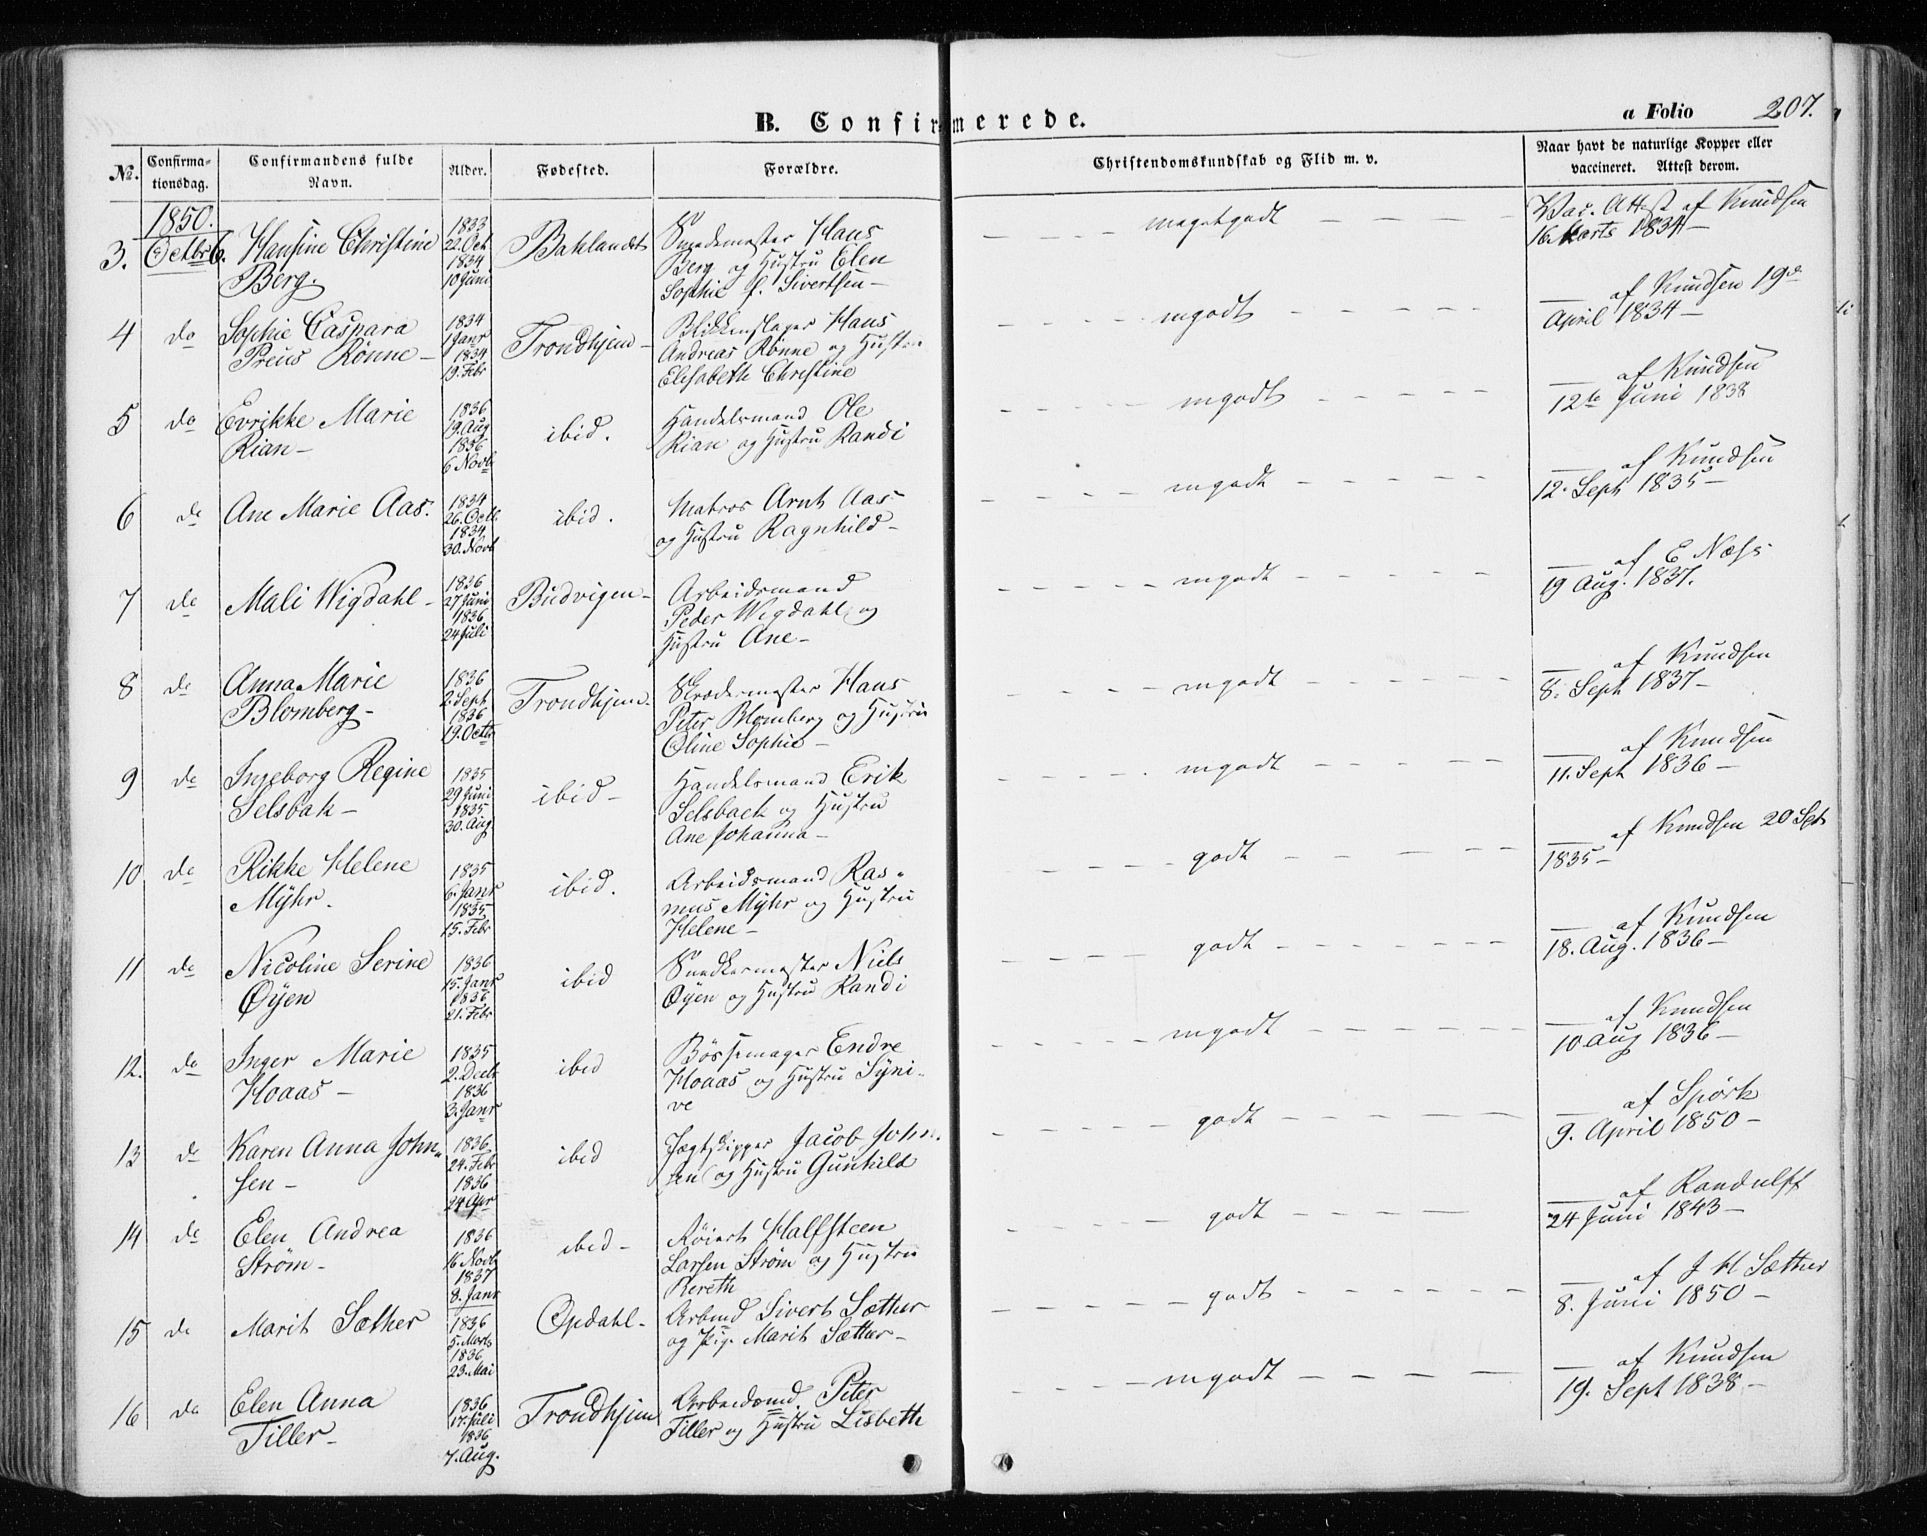 B. Confirmerede.
a Folio 207.
№. Confirmationsdag. Confirmandens fulde Navn. Alder. Fødested. Forældre. Christendomskundskab og Flid m. v. Naar havt de naturlige Kopper eller vaccineret. Attest derom.
1850.
3. Octbr 6. Hansine Christine Berg. 1833 22. Oct 1834 10 Juni Baklandet Smedemester Hans Berg og Hustru Elen Sophie f. Sivertsen — megetgodt Vac. Attest af Knudsen 16. Marts 1834 —
4 do Sophie Caspara Preus Rønne — 1834 1 Janr 1834 19. Febr Trondhjem — Blikkenslager Hans Andreas Rønne og Hustru Elisabeth Christine mgodt — af Knudsen 19de April 1834 —
5 do Evrikke Marie Rian — 1836 19. Aug 1836 6 Novb ibid. Handelsmand Ole Rian og Hustru Randi mgodt — af Knudsen 12te Juni 1838
6 do Ane Marie Aas. 1834 26. Octb. 1834 30. Novb ibid. Matros Arnt Aas og Hustru Ragnhild — mgodt — af Knudsen 12. Sept 1835 —
7 do Mali Wigdahl — 1836 27 Juni 1836 24 Juli Budvigen — Arbeidsmand Peder Wigdahl og Hustru Ane — mgodt — af E Næss 19 Aug. 1837.
8 do Anna Marie Blomberg — 1836 2. Sept 1836 19. Octbr Trondhjem — Skrædermester Hans Peter Blomberg og Hustru Oline Sophie — mgodt — af Knudsen 8. Sept 1837 —
9 do Ingeborg Regine Selsbak — 1835 29 Juni 1835 30. Aug ibid — Handelsmand Erik Selsback og Hustru Ane Johanna — mgodt — af Knudsen 11. Sept 1836 —
10 do Rikke Helene Mÿhr. 1835 6. Janr 1835 15. Febr ibid. Arbeidsmand Rasmus Mÿhr og Hustru Helene — godt — af Knudsen 20 Spt 1835 —
11 do Nicoline Serine Øÿen 1836 15. Janr 1836 21. Febr ibid Snedkermester Niels Øÿen og Hustru Randi godt — af Knudsen 18. Aug. 1836 —
12. do Inger Marie Hoaas — 1835 2. Decbr 1836 3. Janr ibid Bøssemager Endre Hoaas og Hustru Syni-ve mgodt — af Knudsen 10 Aug 1836 —
13 do Karen Anna Johnsen — 1836 24. Febr 1836 24 Apr ibid Jægtskipper Jacob Johnsen og Hustru Gunhild godt — af Spörk 9. April 1850 —
14 do Elen Andrea Strøm — 1836 16 Novb 1837 8. Janr ibid — Halfsteen Larsen Strøm og Hustru Bereth godt — af Randulff 24 Juni 1843 —
15 do Marit Sæther 1836 5. Marts 1836 23. Mai Opdahl — Arbmd Sivert Sæther og Pige Marit Sæther — godt — af J H Sæther 8. Juni 1850 —
16 do Elen Anna Tiller — 1836 17. Juli 1836 7. Aug. Trondhjem Arbeidsmd. Peter Tiller og Hustru Lisbeth mgodt — af Knudsen 19. Sept 1838 —